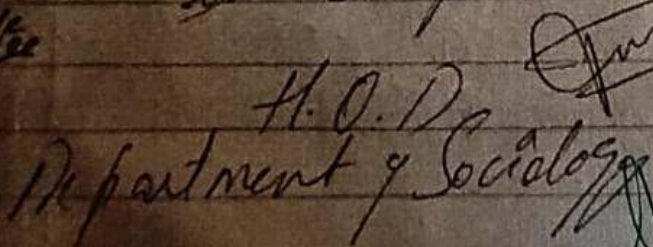 H.O.D
Department of Sociology